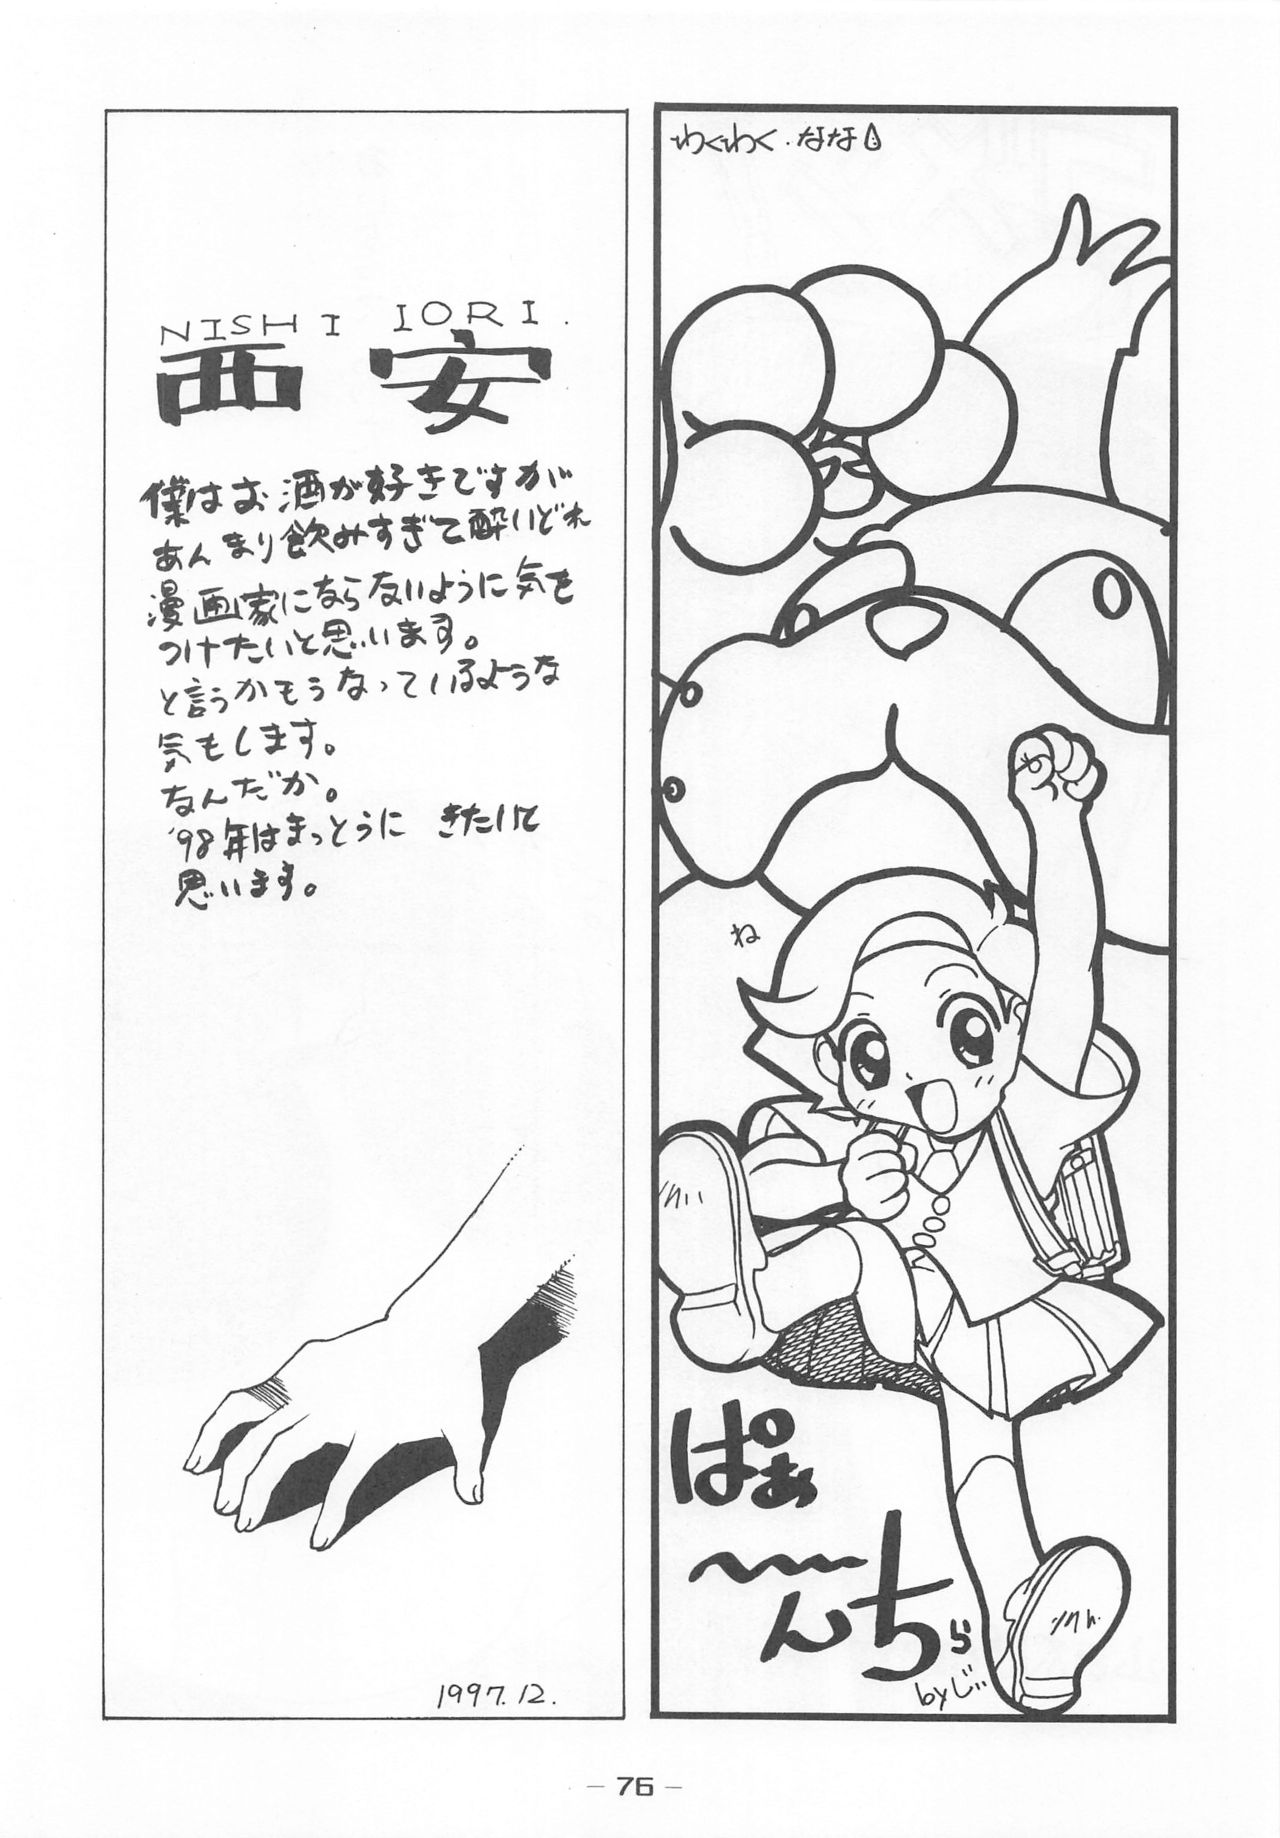 わくわく・なな
ね
ぱぁ
〜んち
by じぃ
NISHI IORI.
西安
僕はお酒が好きですが
あんまり飲みすぎて酔いどれ
漫画家にならないように気を
つけたいと思います。
と言うかもうなっているような
気もします。
なんだか。
'98年はまっとうに きたいて
思います。
1997.12.
– 76 –